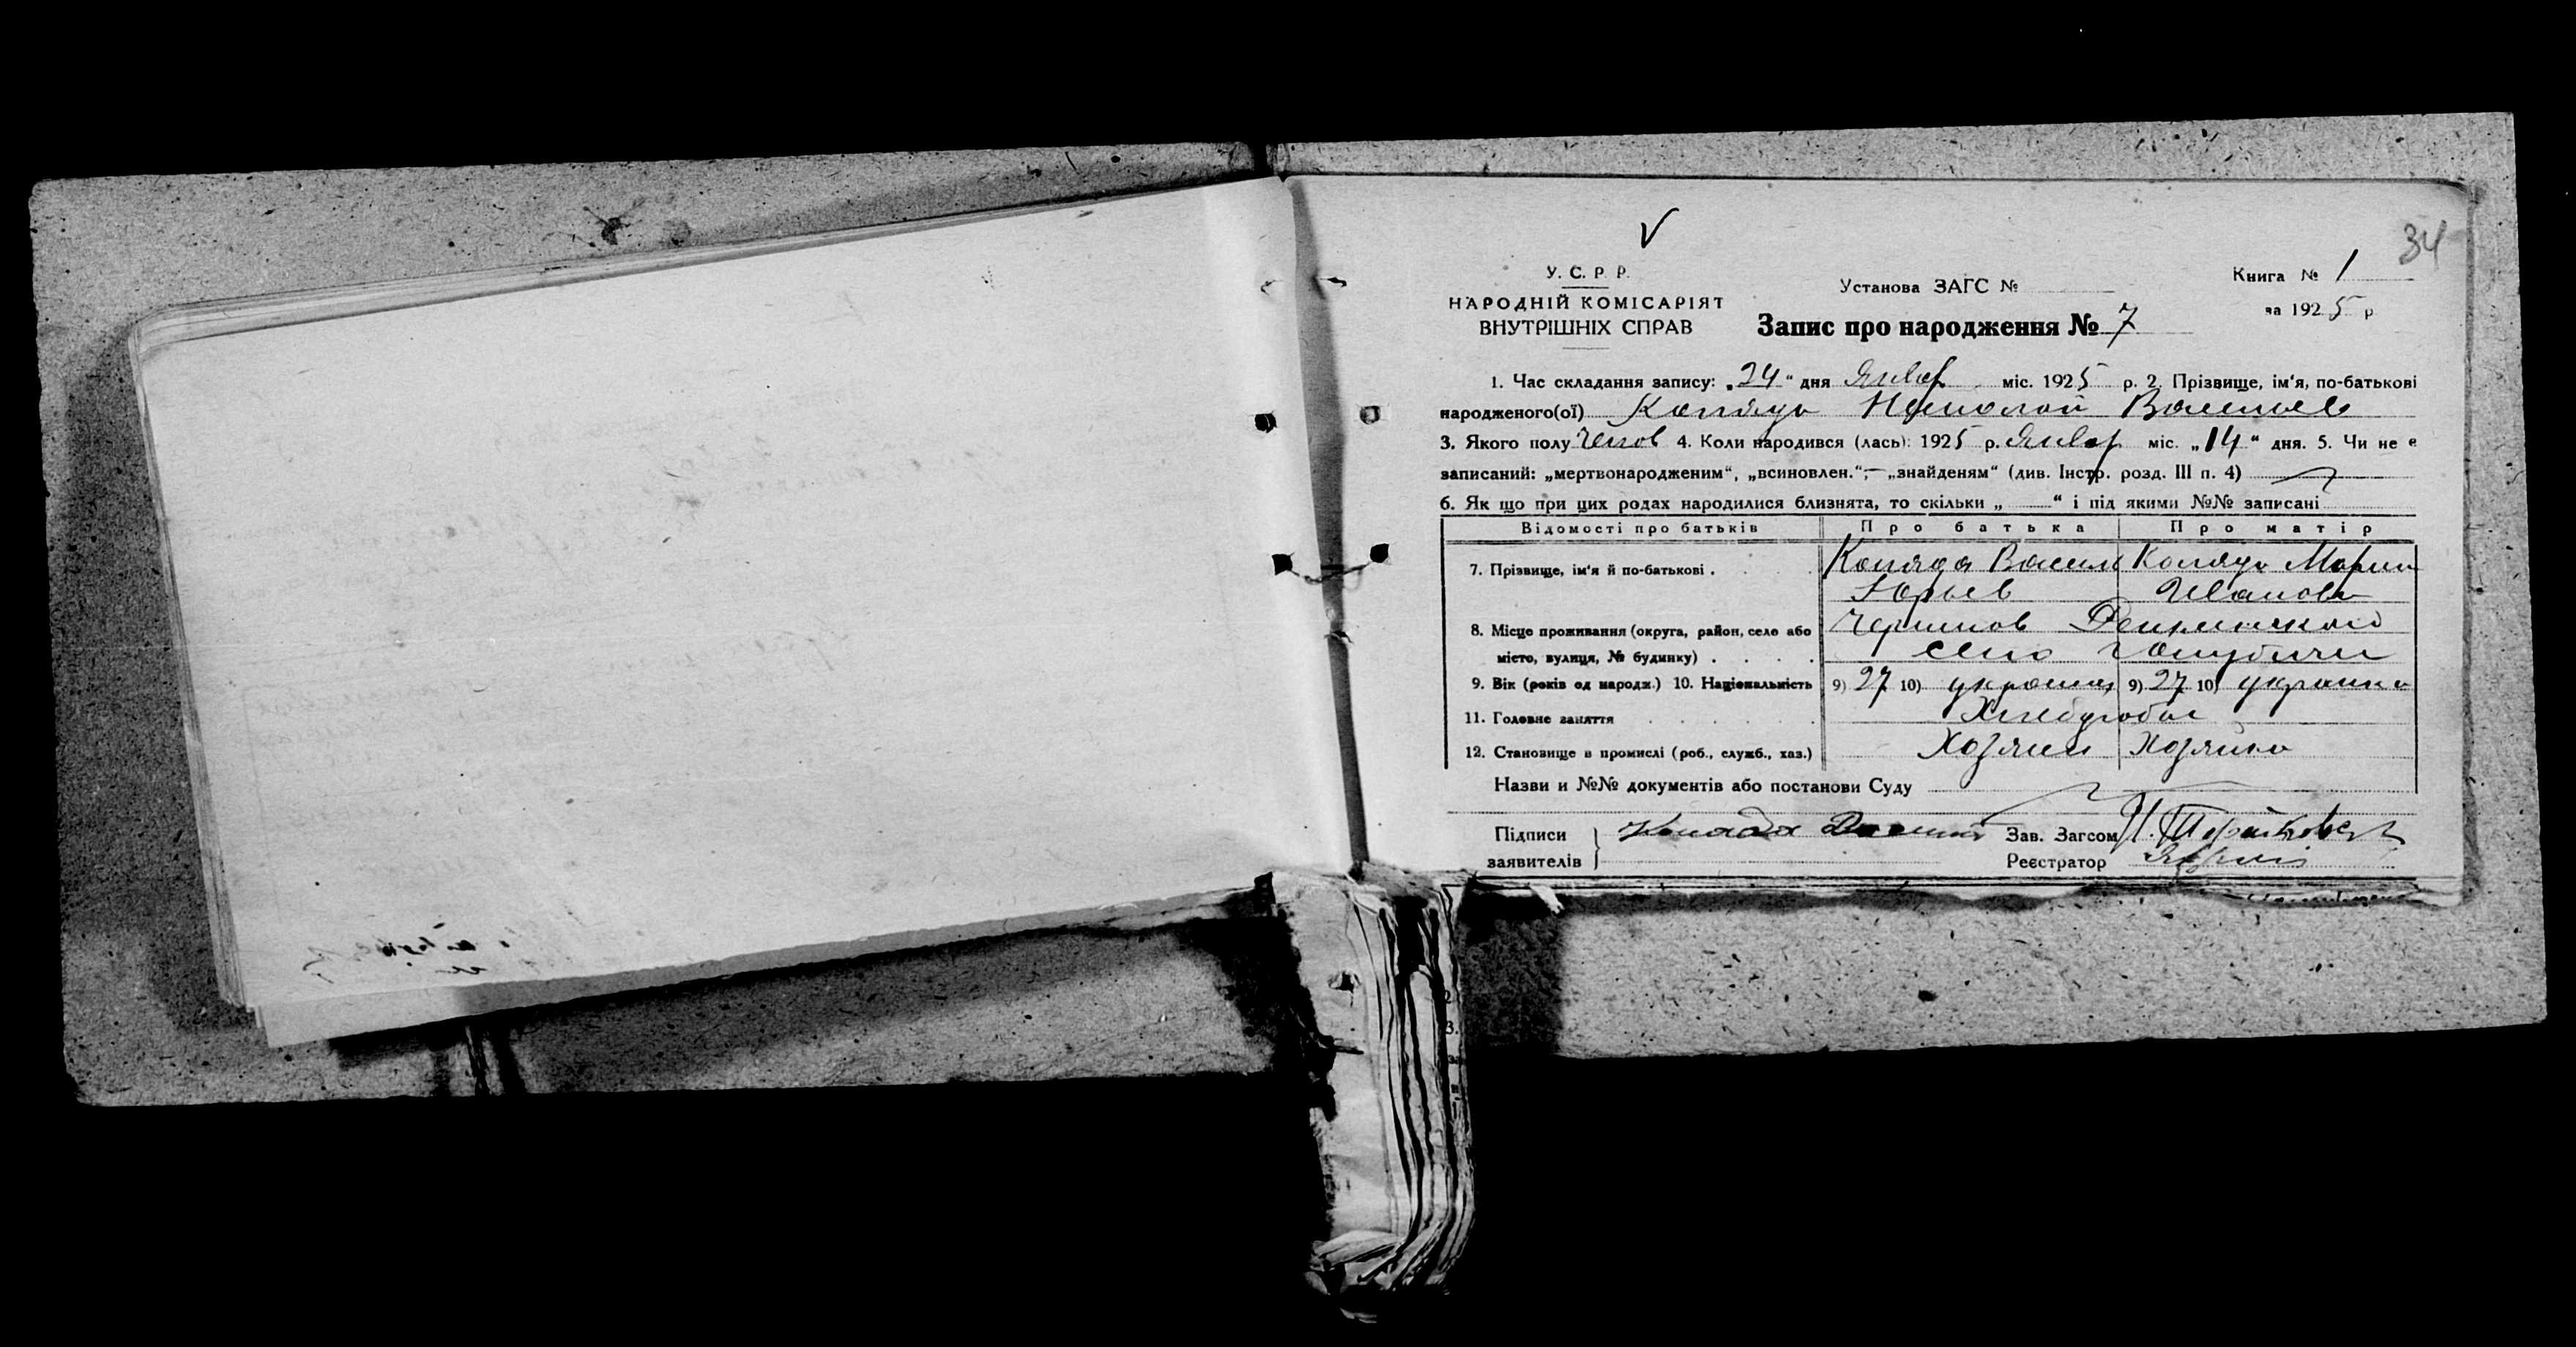 34
У. С. Р. Р.
НАРОДНІЙ КОМІСАРІЯТ
ВНУТРІШНІХ СПРАВ
Установа ЗАГС №
Запис про народження № 7
Книга № 1
за 1925 р
1. Час складання запису: „24“ дня Январ міс. 1925 р. 2. Прізвище, ім'я, по-батькові
народженого(ої) Коляда Николай Васильев
3. Якого полу 4. Коли народився (лась): 1925 р. Январ міс. „14“ дня. 5. Чи не є
записаний: „мертвонародженим“, „всиновлен.“,— „знайденям“ (див. Інстр. розд. III п. 4)
6. Як що при цих родах народилися близнята, то скільки „ “ і під якими №№ записані
Відомості про батьків Про батька Про матір
7. Прізвище, ім'я й по-батькові . Коляда Васили Коляда Мария
Юрьев Иванова
8. Місце проживання (округа, район, село або Чернигов
місто, вулиця, № будинку) . . . . село Голубичи
9. Вік (років од народж.) 10. Національність 9) 27 10) украинец 9) 27 10) украинка
11. Головне заняття . . . . . . Хлебороб
12. Становище в промислі (роб., служб., хаз.) Хозяин Хозяйка
Назви и №№ документів або постанови Суду
Підписи
заявителів
Коляда Зав. Загсом
Реєстратор